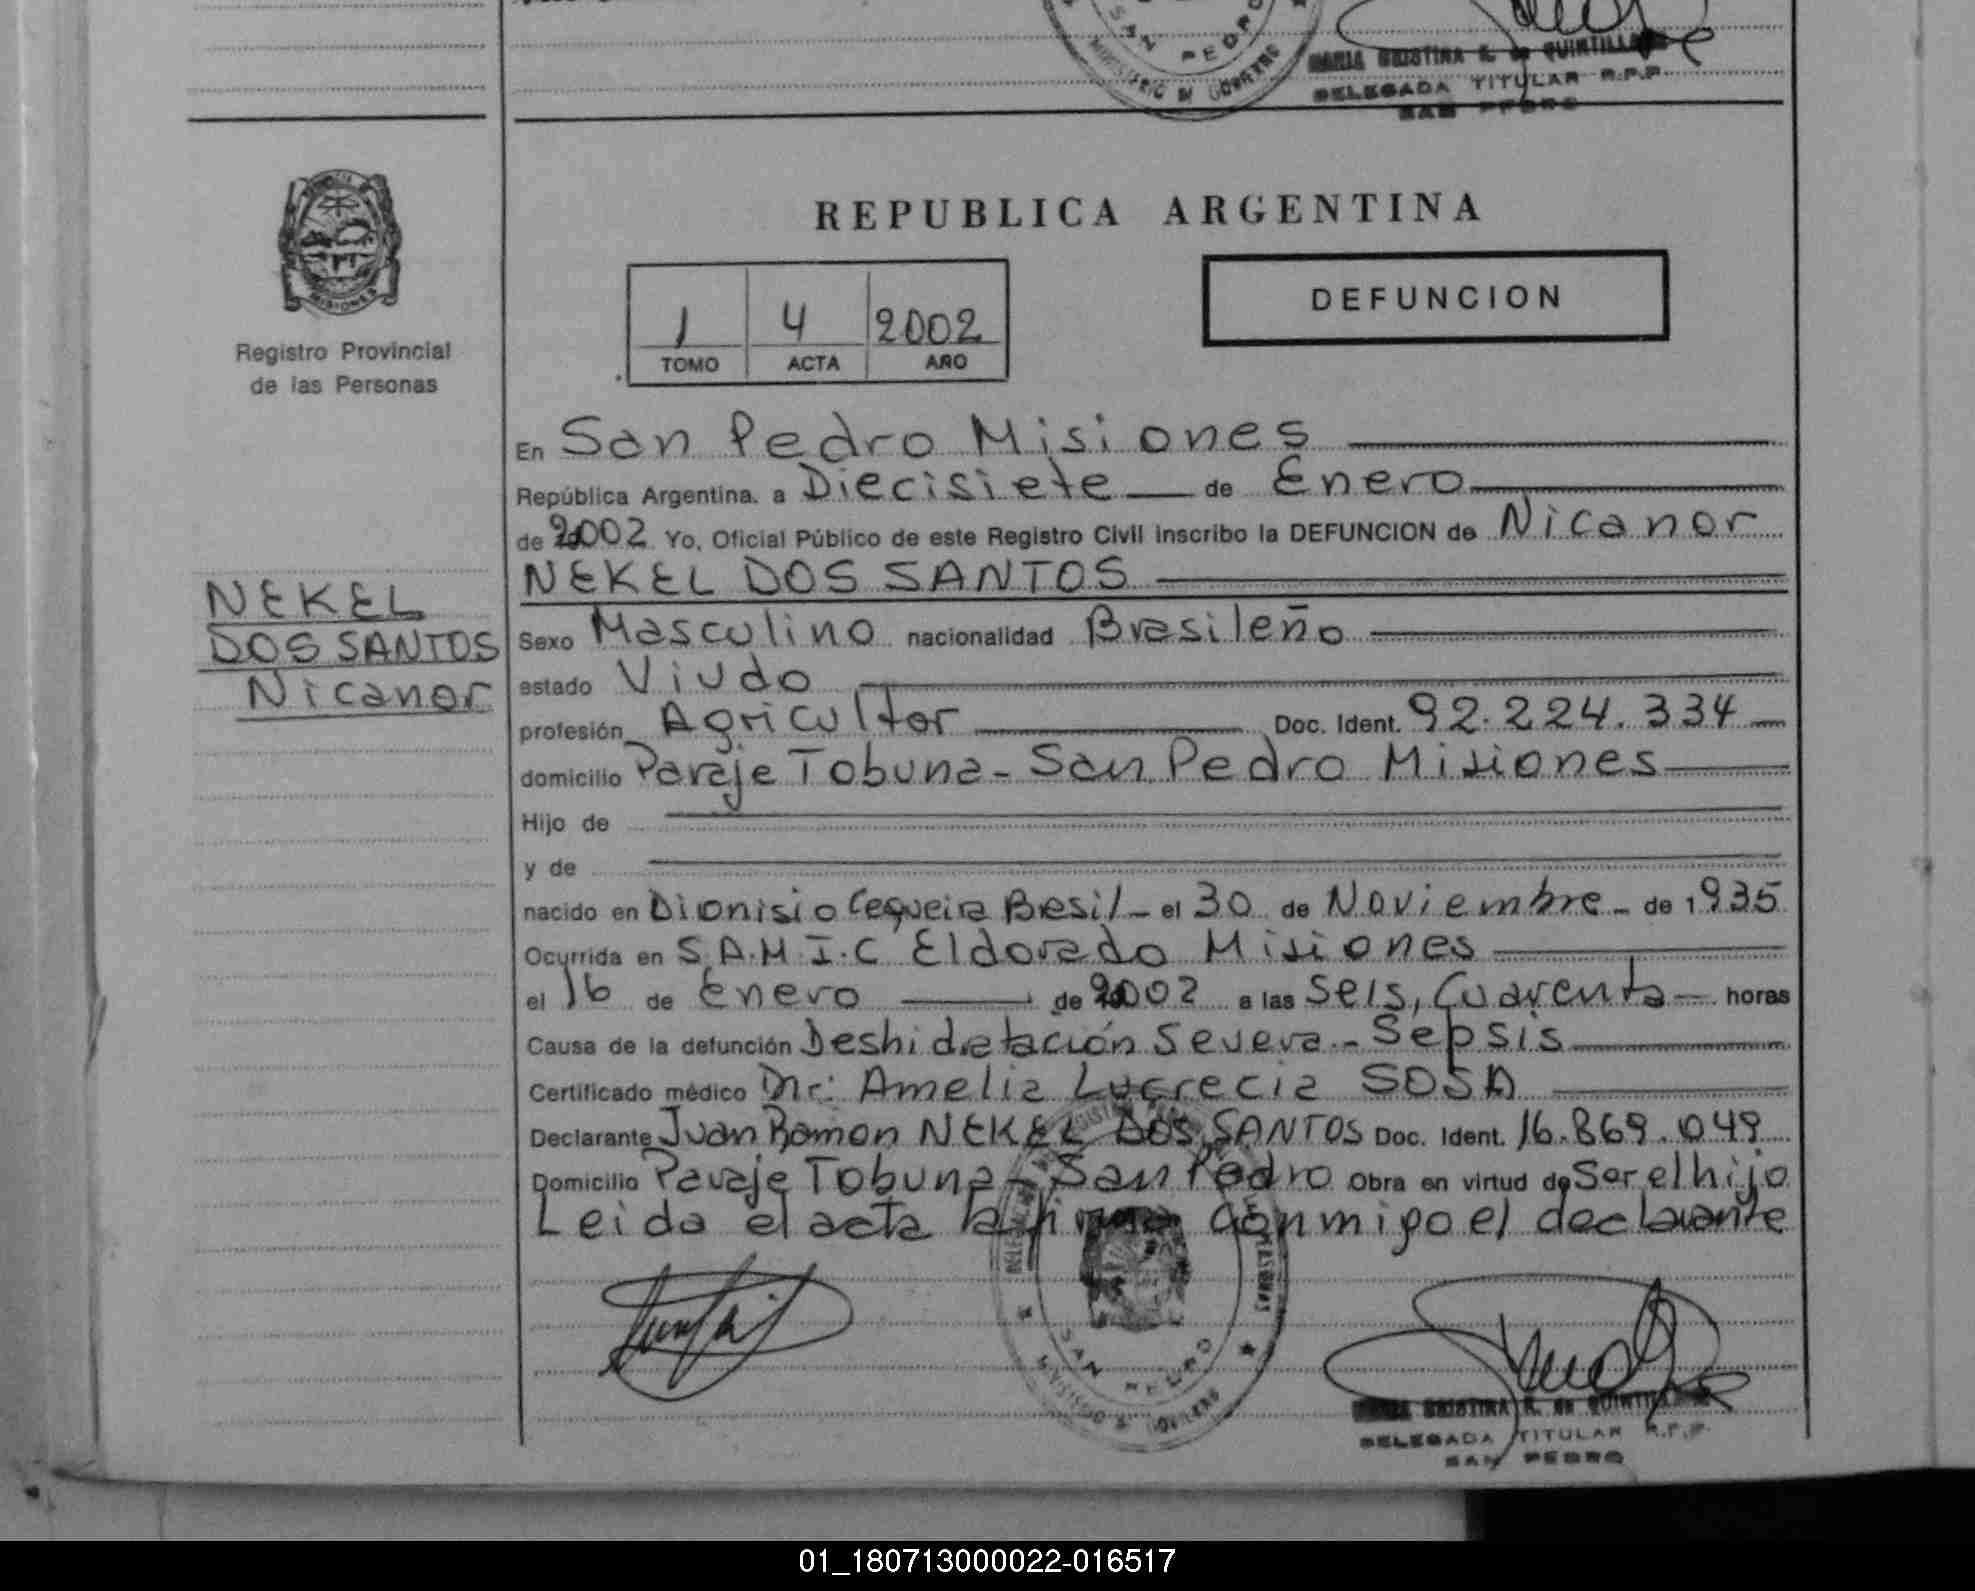 SAN PEDRO
MINISTERIO DE GOBIERNO
MARIA CRISTINA R. de QUINTILLAN
DELEGADA TITULAR R.P.P.
SAN PEDRO
MISIONES
Registro Provincial
de las Personas
REPUBLICA ARGENTINA
1 4 2002
TOMO ACTA AÑO
DEFUNCION
En San Pedro Misiones
República Argentina, a Diecisiete de Enero
de 2002 Yo, Oficial Público de este Registro Civil inscribo la DEFUNCION de Nicanor
NEKEL DOS SANTOS
NEKEL
DOS SANTOS
Nicanor
Sexo Masculino nacionalidad Brasileño
estado Viudo
profesión Agricultor Doc. Ident. 92.224.334
domicilio Paraje Tobuna - San Pedro Misiones
Hijo de
y de
nacido en Dionisio Cequeira Brasil - el 30 de Noviembre - de 1935
Ocurrida en S.A.M.I.C Eldorado Misiones
el 16 de Enero de 2002 a las Seis, Cuarenta horas
Causa de la defunción Deshidratación Severa - Sepsis
Certificado médico Dr: Amelia Lucrecia SOSA
Declarante Juan Ramon NEKEL DOS SANTOS Doc. Ident. 16.869.049
Domicilio Paraje Tobuna - San Pedro Obra en virtud de Ser el hijo
Leida el acta la firma conmigo el declarante
SAN PEDRO
MARIA CRISTINA R. de QUINTILLAN
DELEGADA TITULAR R.P.P.
SAN PEDRO
01_180713000022-016517